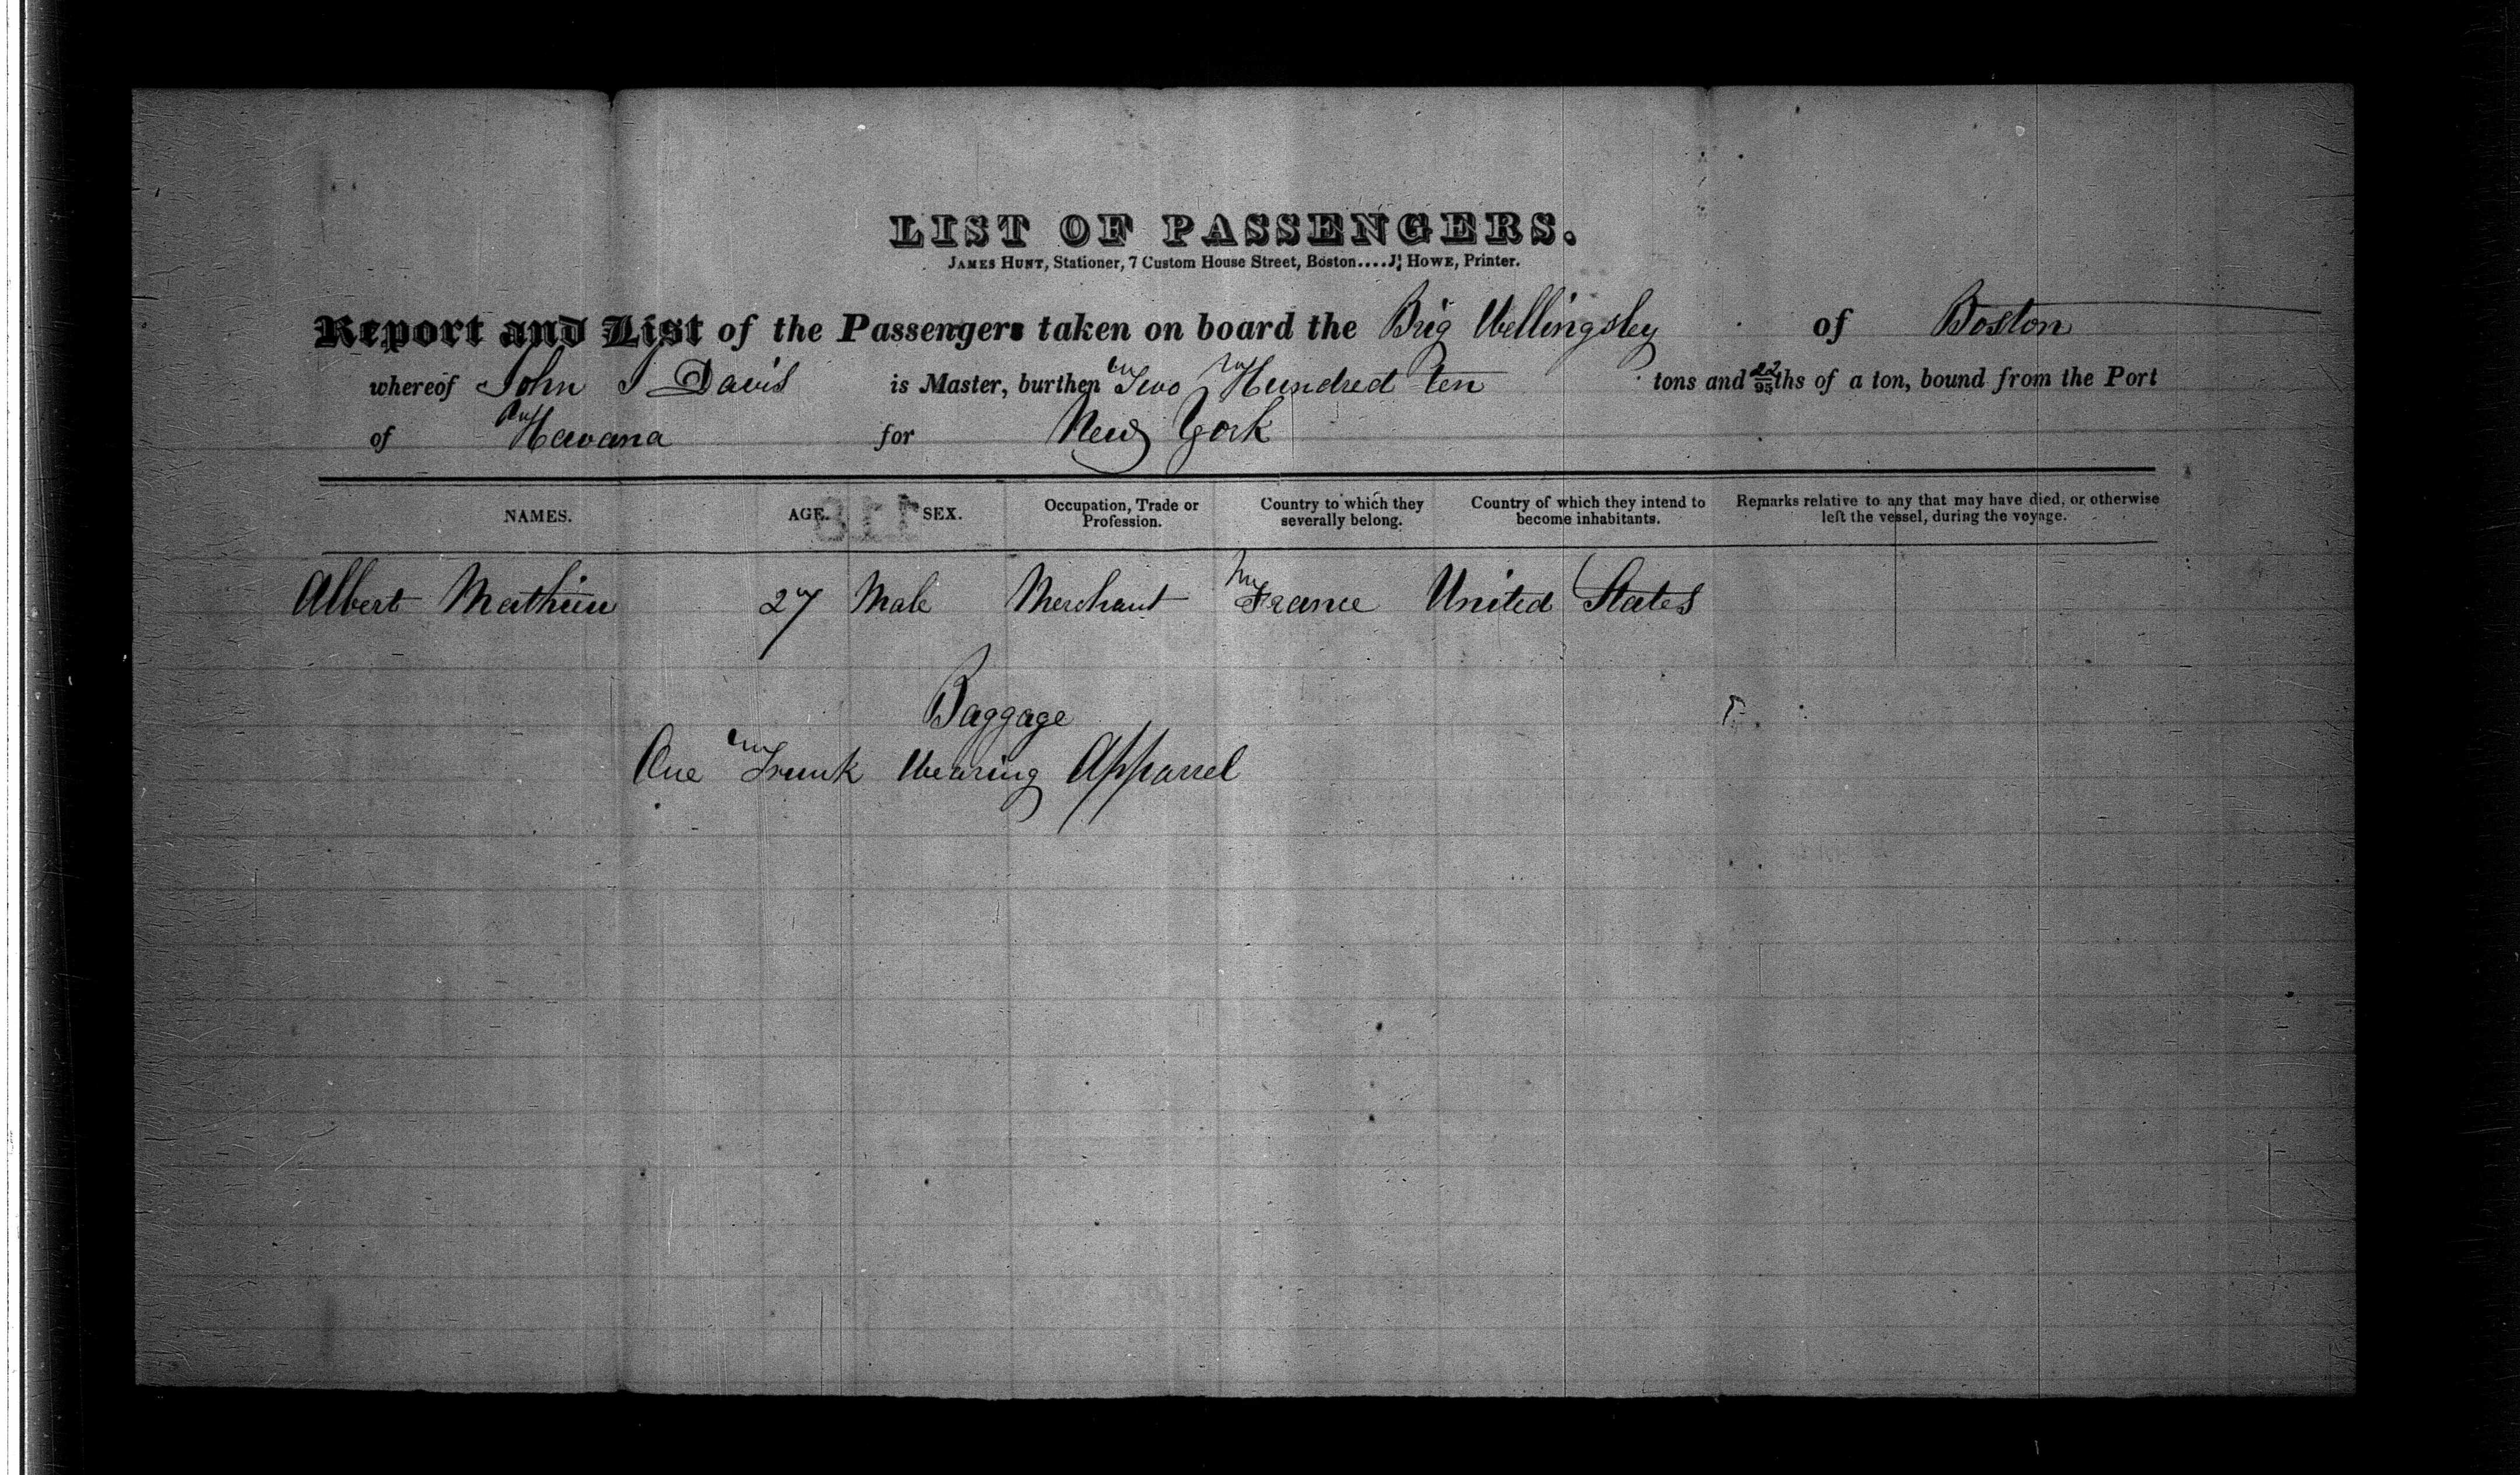 LIST OF PASSENGERS.
JAMES HUNT, Stationer, 7 Custom House Street, Boston....J. HOWE, Printer.
Report and List of the Passengers taken on board the Brig Wellingsley of Boston
whereof John J Davis is Master, burthen Two Hundred ten tons and /95ths of a ton, bound from the Port
of Havana for New York
NAMES. AGE. SEX. Occupation, Trade or Profession. Country to which they severally belong. Country of which they intend to become inhabitants. Remarks relative to any that may have died, or otherwise left the vessel, during the voyage.
Albert Mathieu 27 Male Merchant France United States
Baggage
One Trunk Wearing Apparrel